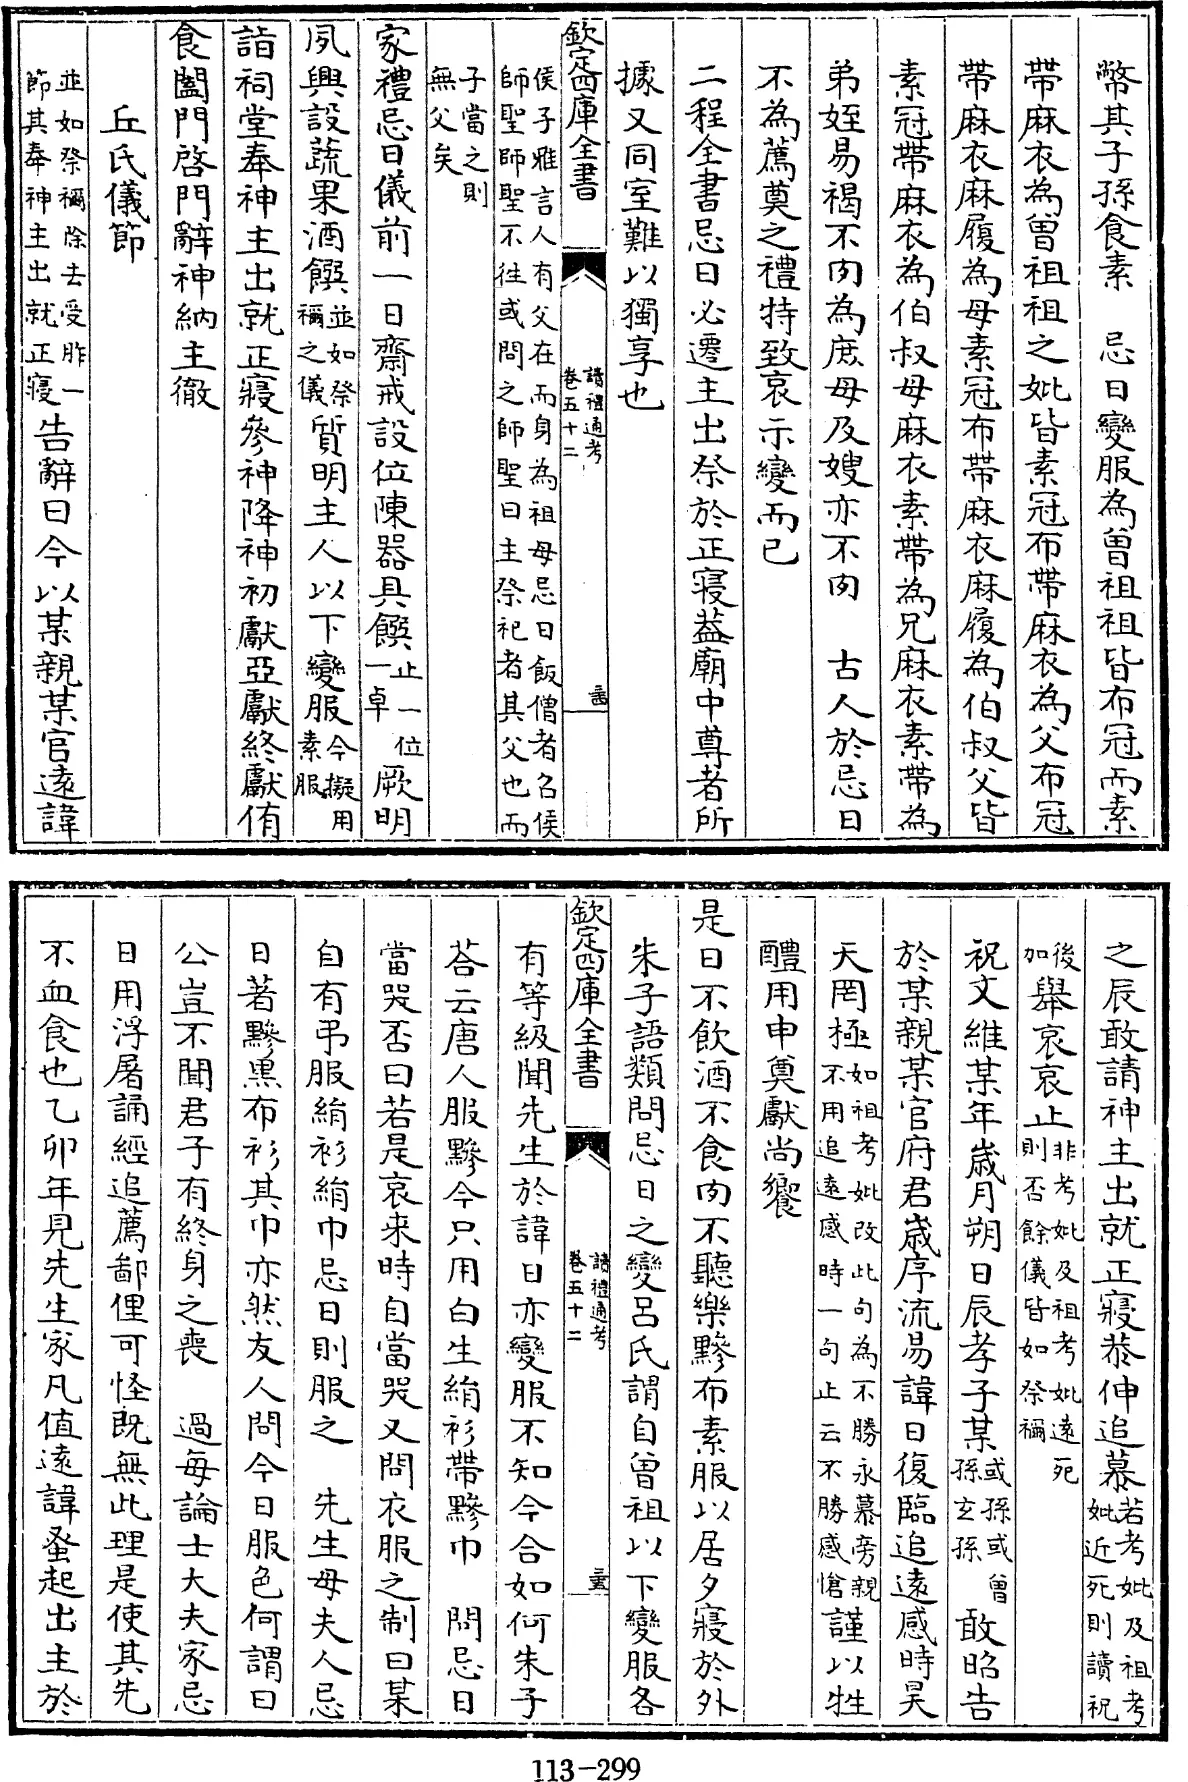 幣其子孫食素　忌日變服為曾祖祖皆布冠而素
帶麻衣為曾祖祖之妣皆素冠布帶麻衣為父布冠
帶麻衣麻履為母素冠布帶麻衣麻履為伯叔父皆
素冠帶麻衣為伯叔母麻衣素帶為兄麻衣素帶為
弟姪易褐不肉為庶母及嫂亦不肉　古人於忌日
不為薦奠之禮特致哀示變而已
二程全書忌日必遷主出祭於正寢葢廟中尊者所
據又同室難以獨享也
欽定四庫全書
讀禮通考
卷五十二
侯子雅言人有父在而身為祖母忌日飯僧者召侯
師聖師聖不往或問之師聖曰主祭祀者其父也而
子當之則
無父矣
家禮忌日儀前一日齋戒設位陳器具饌止一位一卓厥明
夙興設蔬果酒饌並如祭禰之儀質明主人以下變服今擬用素服
詣祠堂奉神主出就正寢參神降神初獻亞獻終獻侑
食闔門啓門辭神納主徹
丘氏儀節
並如祭禰除去受胙一節其奉神主出就正寢告辭曰今以某親某官遠諱
之辰敢請神主出就正寢恭伸追慕若考妣及祖考妣近死則讀祝
後加舉哀哀止非考妣及祖考妣遠死則否餘儀皆如祭禰
祝文維某年歲月朔日辰孝子某或孫或曾孫玄孫敢昭告
於某親某官府君歲序流易諱日復臨追遠感時昊
天罔極如祖考妣改此句為不勝永慕旁親不用追遠感時一句止云不勝感愴謹以牲
醴用申奠獻尚饗
是日不飲酒不食肉不聽樂黲布素服以居夕寢於外
朱子語類問忌日之變呂氏謂自曾祖以下變服各
欽定四庫全書
讀禮通考
卷五十二
有等級聞先生於諱日亦變服不知今合如何朱子
荅云唐人服黲今只用白生絹衫帶黲巾　問忌日
當哭否曰若是哀来時自當哭又問衣服之制曰某
自有弔服絹衫絹巾忌日則服之　先生母夫人忌
日著黲黒布衫其巾亦然友人問今日服色何謂曰
公豈不聞君子有終身之喪　過每論士大夫家忌
日用浮屠誦經追薦鄙俚可怪既無此理是使其先
不血食也乙卯年見先生家凡值遠諱蚤起出主於
113-299